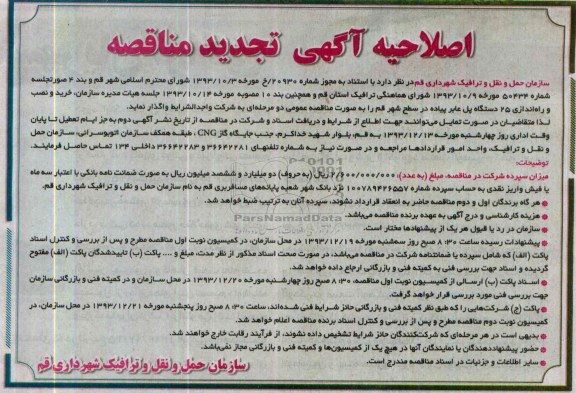 اصلاحیه آگهی تجدید مناقصه
سازمان حمل و نقل و ترافیک شهرداری قم در نظر دارد با استناد به مجوز شماره ۲۰۹۳۰/خ مورخه ۱۳۹۳/۱۰/۳ شورای محترم اسلامی شهر قم و بند ۴ صورتجلسه
شماره ۵۰۴۳۴ مورخه ۱۳۹۳/۱۰/۹ شورای هماهنگی ترافیک استان قم و همچنین بند ۱۰ مصوبه مورخه ۱۳۹۳/۱۰/۱۴ جلسه هیات مدیره سازمان، خرید و نصب
و راه‌اندازی ۲۵ دستگاه پل عابر پیاده در سطح شهر قم را به صورت مناقصه عمومی دو مرحله‌ای به شرکت واجدالشرایط واگذار نماید.
لذا متقاضیان در صورت تمایل می‌توانند جهت اطلاع از شرایط و دریافت اسناد و شرکت در مناقصه از تاریخ نشر آگهی دوم به جز ایام تعطیل تا پایان
وقت اداری روز چهارشنبه مورخه ۱۳۹۳/۱۲/۱۳ به قم، بلوار شهید خداکرم، جنب جایگاه گاز CNG، طبقه همکف سازمان اتوبوسرانی، سازمان حمل
و نقل و ترافیک، واحد امور قراردادها مراجعه و در صورت نیاز به شماره تلفنهای ۳۶۶۴۲۲۸۱ و ۳۶۶۴۲۲۸۳ داخلی ۱۳۴ تماس حاصل فرمایند.
توضیحات:
میزان سپرده شرکت در مناقصه، مبلغ (به عدد): ۲/۶۰۰/۰۰۰/۰۰۰ ریال (به حروف) دو میلیارد و ششصد میلیون ریال به صورت ضمانت نامه بانکی با اعتبار سه ماه
یا فیش واریز نقدی به حساب سپرده شماره ۱۰۰۷۸۹۴۲۶۵۵۷ نزد بانک شهر شعبه پایانه‌های مسافربری قم به نام سازمان حمل و نقل و ترافیک شهرداری قم.
هر گاه برندگان اول و دوم مناقصه حاضر به انعقاد قرارداد نشوند، سپرده آنان به ترتیب ضبط خواهد شد.
هزینه کارشناسی و درج آگهی به عهده برنده مناقصه می‌باشد.
سازمان در رد یا قبول هر یک از پیشنهادها مختار است.
پیشنهادات رسیده ساعت ۸:۳۰ صبح روز سه‌شنبه مورخه ۱۳۹۳/۱۲/۱۹ در محل سازمان، در کمیسیون نوبت اول مناقصه مطرح و پس از بررسی و کنترل اسناد
پاکت (الف) که شامل سپرده یا ضمانتنامه شرکت در مناقصه می‌باشد، در صورت صحت اسناد مذکور از نظر مدت، مبلغ و .... پاکت (ب) تاییدشدگان پاکت (الف) مفتوح
گردیده و اسناد جهت بررسی فنی به کمیته فنی و بازرگانی ارجاع داده خواهد شد.
اسناد پاکت (ب) ارسالی از کمیسیون نوبت اول مناقصه، ۸:۳۰ صبح روز چهارشنبه مورخه ۱۳۹۳/۱۲/۲۰ در محل سازمان و در کمیته فنی و بازرگانی سازمان
جهت بررسی فنی مورد بررسی قرار خواهد گرفت.
پاکت (ج) شرکت‌هایی را که طبق نظر کمیته فنی و بازرگانی حائز شرایط فنی شده‌اند، ساعت ۸:۳۰ صبح روز پنجشنبه مورخه ۱۳۹۳/۱۲/۲۱ در محل سازمان، در
کمیسیون نوبت دوم مناقصه مطرح و پس از بررسی و کنترل اسناد برنده مناقصه اعلام خواهد شد.
بدیهی است در هر مرحله‌ای که شرکت‌کنندگان حائز شرایط تشخیص داده نشوند، از فرآیند رقابت خارج خواهند شد.
حضور پیشنهاددهندگان یا نمایندگان آنها در هیچ یک از کمیسیون‌ها و کمیته فنی و بازرگانی مجاز نمی‌باشد.
سایر اطلاعات و جزئیات در اسناد مناقصه مندرج است.
سازمان حمل و نقل و ترافیک شهرداری قم
ParsNamadData